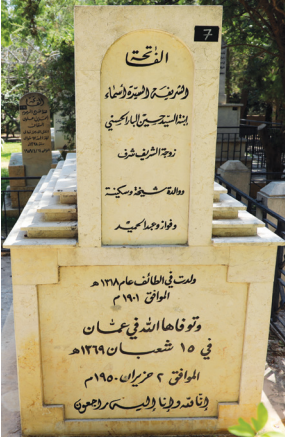 7
الفاتحة
الشريفة السيدة اسماء
ابنة السيد حسين البار الحسني
زوجة الشريف شرف
ووالدة شيخة وسكينة
وفواز وعبد الحميد
ولدت في الطائف عام ١٣١٨هـ
الموافق ١٩٠١ م
وتوفاها الله في عمان
في ١٥ شعبان ١٣٦٩هـ
الموافق ٢ حزيران ١٩٥٠م
إنا لله وإنا إليه راجعون